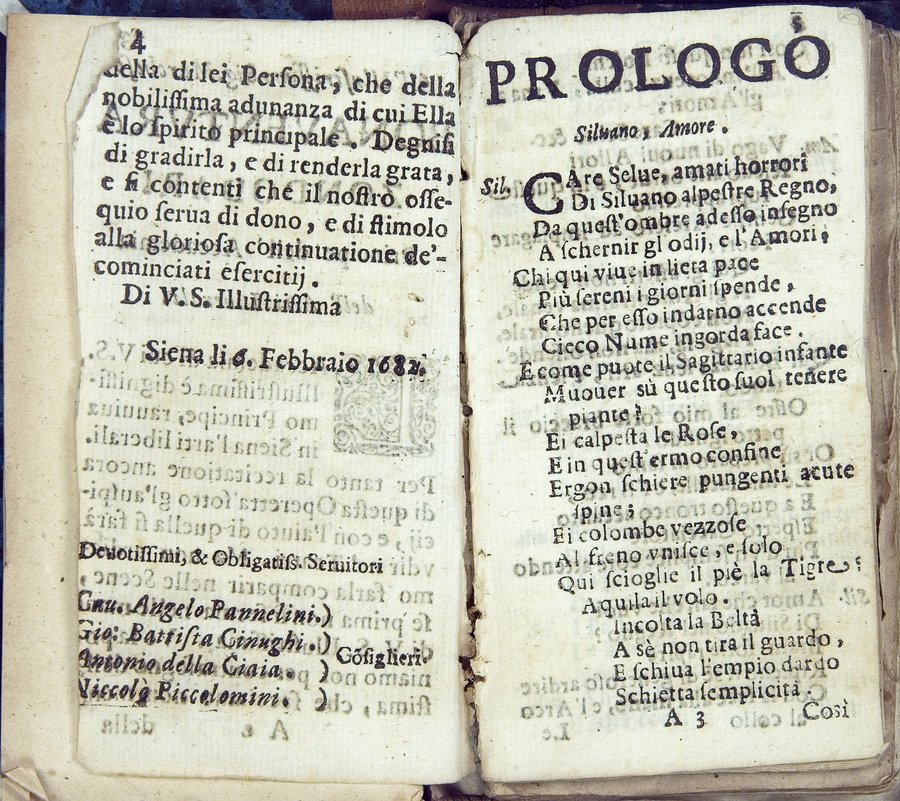 4
della di lei Persona, che della
nobilissima adunanza di cui Ella
è lo spirito principale. Degnisi
di gradirla, e di renderla grata,
e si contenti che il nostro osse-
quio serua di dono, e di stimolo
alla gloriosa continuatione de'-
cominciati esercitij.
Di V. S. Illustrissima
Siena li 6. Febbraio 1682.
Deuotissimi, & Obligatiss. Seruitori
Cau. Angelo Pannelini.)
Gio: Battista Cinughi.)
Antonio della Ciaia. ) Cõsiglieri.
Niccolò Piccolomini. )
5
PROLOGO
Siluano, Amore.
Sil. CAre Selue, amati horrori
Di Siluano alpestre Regno,
Da quest'ombre adesso insegno
A schernir gl odij, e l'Amori.
Chi qui viue in lieta pace
Più sereni i giorni spende,
Che per esso indarno accende
Cieco Nume ingorda face.
E come puote il Sagittario infante
Muouer sù questo suol tenere
piante?
Ei calpesta le Rose,
E in quest'ermo confine
Ergon schiere pungenti acute
spine;
Ei colombe vezzose
Al freno vnisce, e solo
Qui scioglie il piè la Tigre:
Aquila il volo.
Incolta la Beltà
A sè non tira il guardo,
E schiua l'empio dardo
Schietta semplicità.
A 3 Così